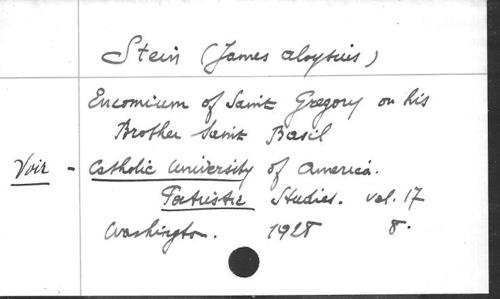 Stein (James Aloysius)
Encomium of Saint Gregory on his
Brother Saint Basil
Voir - Catholic University of America.
Patristic Studies. vol. 17
Washington. 1928 8.